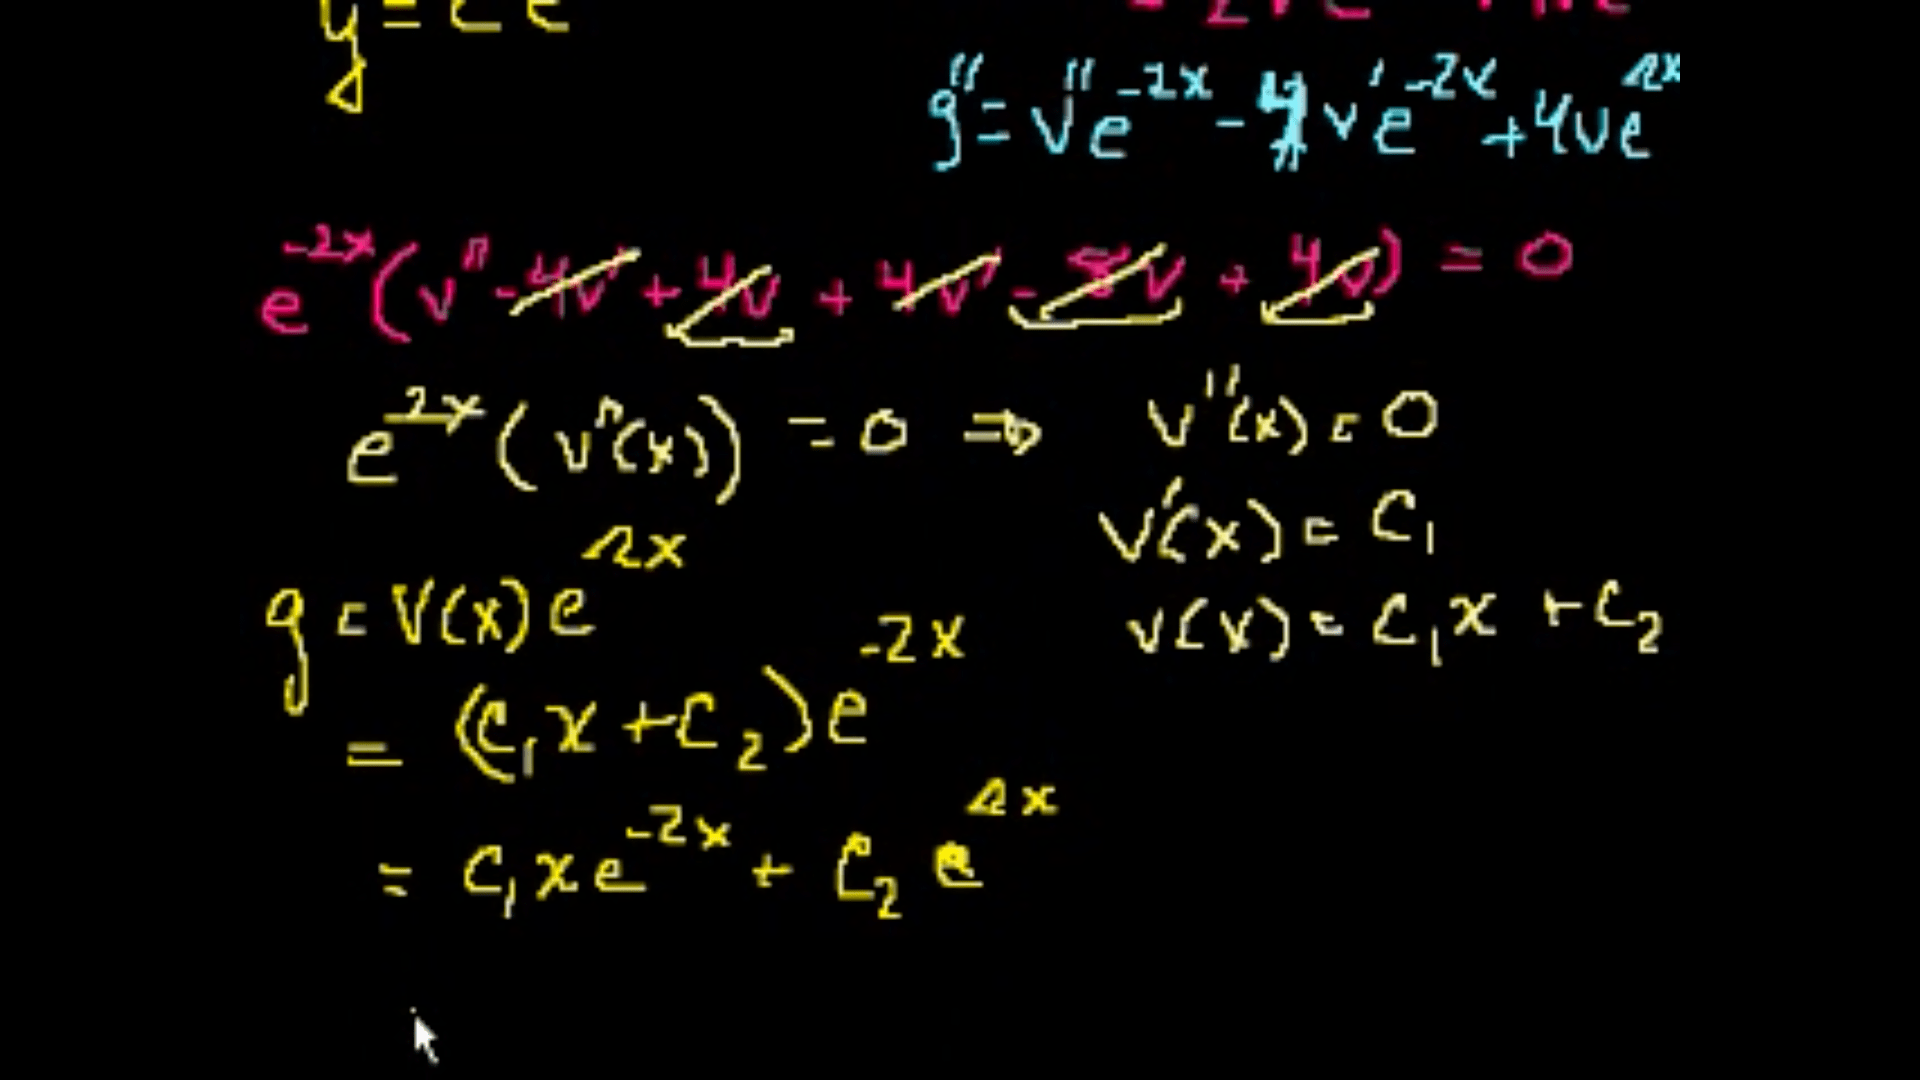 y = c e
= -2ve
g'' = v''e^{-2x} - 4v'e^{-2x} + 4ve^{-2x}
e^{-2x}(v'' - 4v' + 4v + 4v' - 8v + 4v) = 0
e^{-2x}(v''(x)) = 0 ⇒ v''(x) = 0
v'(x) = C₁
g = v(x)e^{-2x}
v(x) = C₁x + C₂
= (C₁x + C₂)e^{-2x}
= C₁xe^{-2x} + C₂e^{-2x}